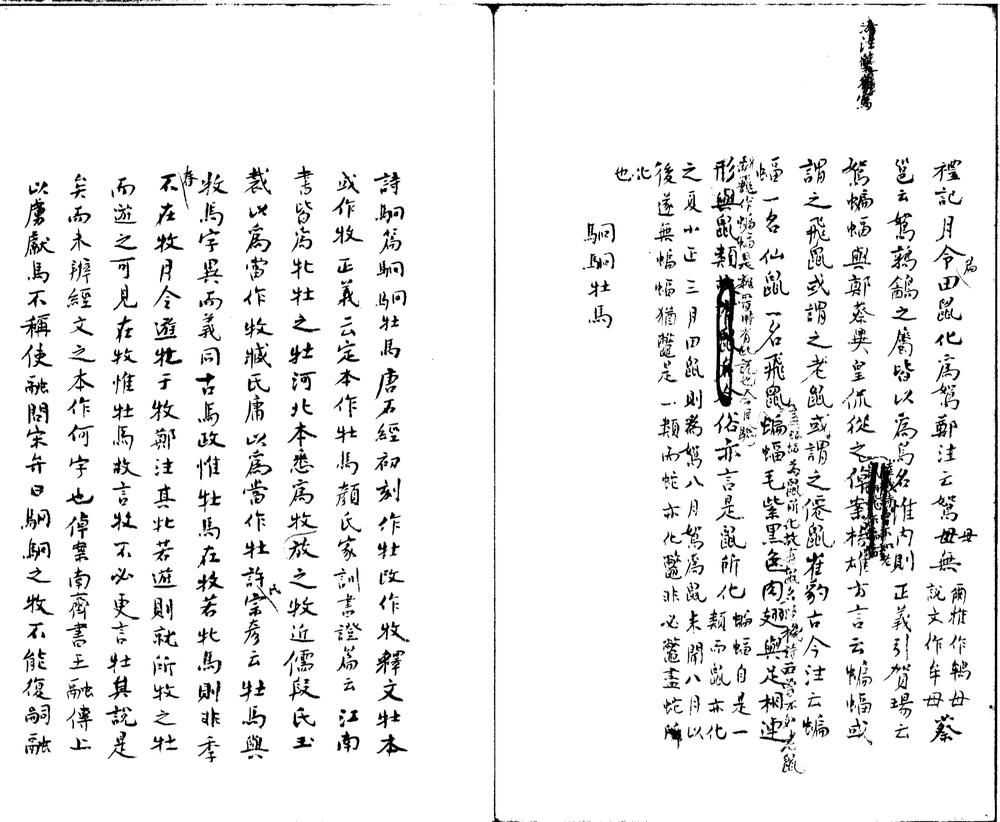 禮記月令篇田鼠化為鴽鄭注云鴽母無爾雅作鴾母說文作牟母蔡
邕云鴽鶉鷂之屬皆以為鳥名惟內則正義引賀瑒云
鴽蝙蝠與鄭蔡異皇侃從之倬案楊雄方言云蝙蝠或
謂之飛鼠或謂之老鼠或謂之僊鼠崔豹古今注云蝙
蝠一名仙鼠一名飛鼠蝙蝠毛紫黑色肉翅與足相連
形與鼠類俗亦言是鼠所化蝙蝠自是一類而鼠亦化
之夏小正三月田鼠則為鴽八月鴽為鼠未聞八月以
後遂無蝙蝠猶鼈是一類而蛇亦化鼈非必鼈盡蛇所
化也
駉駉牡馬
詩駉篇駉駉牡馬唐石經初刻作牡改作牧釋文牡本
或作牧正義云定本作牡馬顏氏家訓書證篇云江南
書皆為牝牡之牡河北本悉為放牧之牧近儒段氏玉
裁以為當作牧臧氏庸以為當作牡許氏宗彥云牡馬與
牧馬字異而義同古馬政惟牡馬在牧若牝馬則非季春
不在牧月令遊牝于牧鄭注其牝若遊則就所牧之牡
而遊之可見在牧惟牡馬故言牧不必更言牡其說是
矣而未辨經文之本作何字也倬案南齊書王融傳上
以虜獻馬不稱使融問宋弁曰駉駉之牧不能復嗣融